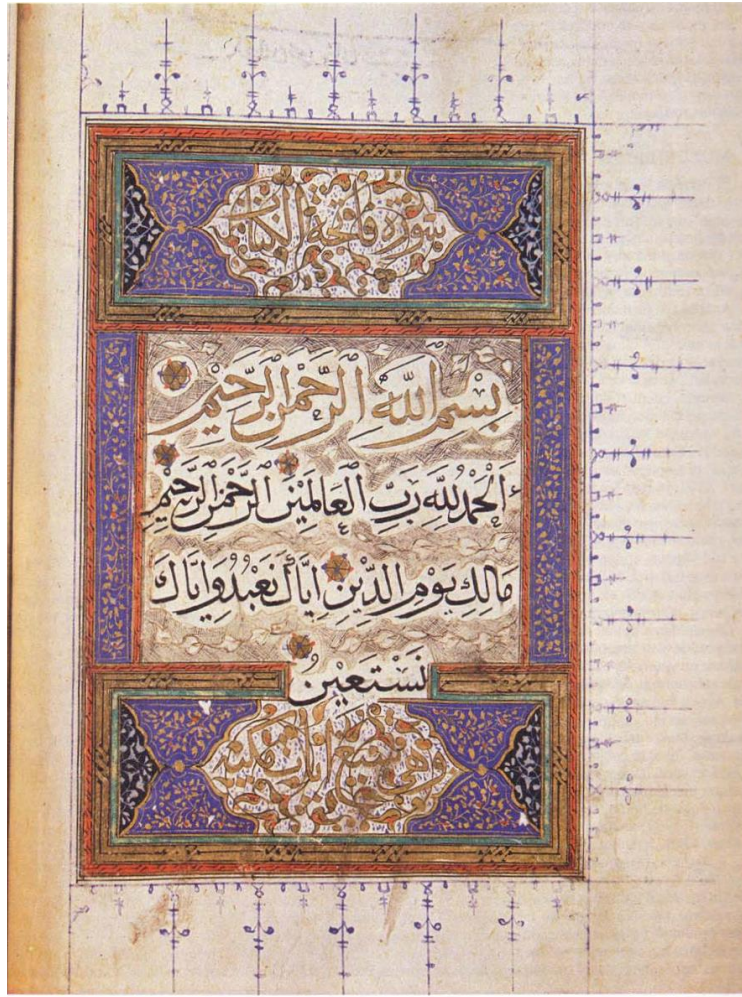 سورة فاتحة الكتاب
بِسْمِ اللَّهِ الرَّحْمَنِ الرَّحِيمِ
اَلْحَمْدُ لِلَّهِ رَبِّ الْعَالَمِينَ الرَّحْمَنِ الرَّحِيمِ
مَالِكِ يَوْمِ الدِّينِ اِيَّاكَ نَعْبُدُ وَاِيَّاكَ
نَسْتَعِينُ
وهي سبع ايات مكية